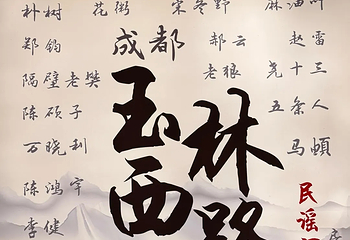 朴树 花粥 宋冬野 麻油叶
郑钧 成都 郝云 赵雷
隔壁老樊 老狼 尧十三
陈硕子 五条人
万晓利 马頔
陈鸿宇
李健
玉林
西路
民谣